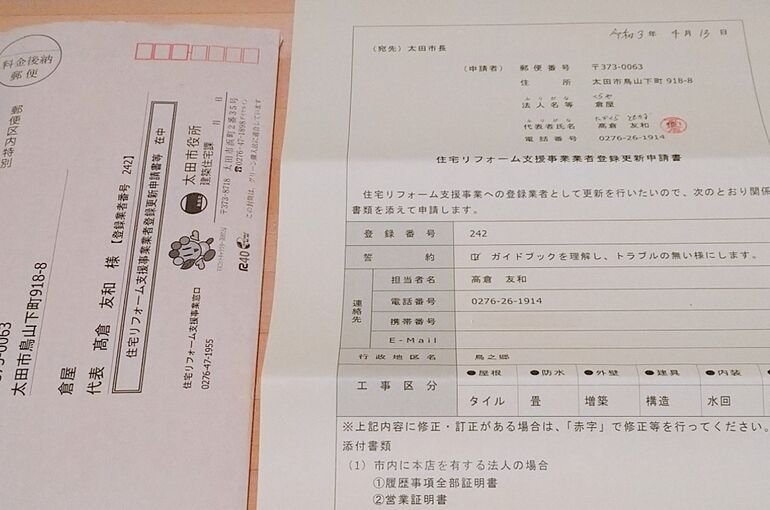 料金後納
郵便
郵便区内特別
373-0063
太田市鳥山下町918-8
倉屋
代表 髙倉 友和 様 【登録業者番号 242】
住宅リフォーム支援事業業者登録更新申請書等 在中
太田市役所
建築住宅課
月 日
〒373-8718 太田市浜町2番35号
☎0276-47-1898
この封筒は、グリーン購入法に適合しています
R40
住宅リフォーム支援事業窓口
0276-47-1955
令和3年 4月13日
(宛先) 太田市長
(申請者) 郵便番号 〒373-0063
住所 太田市鳥山下町 918-8
ふりがな くらや
法人名等 倉屋
ふりがな たかくら ともかず
代表者氏名 髙倉 友和
電話番号 0276-26-1914
住宅リフォーム支援事業業者登録更新申請書
住宅リフォーム支援事業への登録業者として更新を行いたいので、次のとおり関係
書類を添えて申請します。
登録番号 242
誓約 ☑ ガイドブックを理解し、トラブルの無い様にします。
連絡先
担当者名 髙倉 友和
電話番号 0276-26-1914
携帯番号
E-Mail
行政地区名 鳥之郷
工事区分
●屋根 ●防水 ●外壁 ●建具 ●内装
タイル 畳 増築 構造 水回
※上記内容に修正・訂正がある場合は、「赤字」で修正等を行ってください。
添付書類
(1) 市内に本店を有する法人の場合
①履歴事項全部証明書
②営業証明書